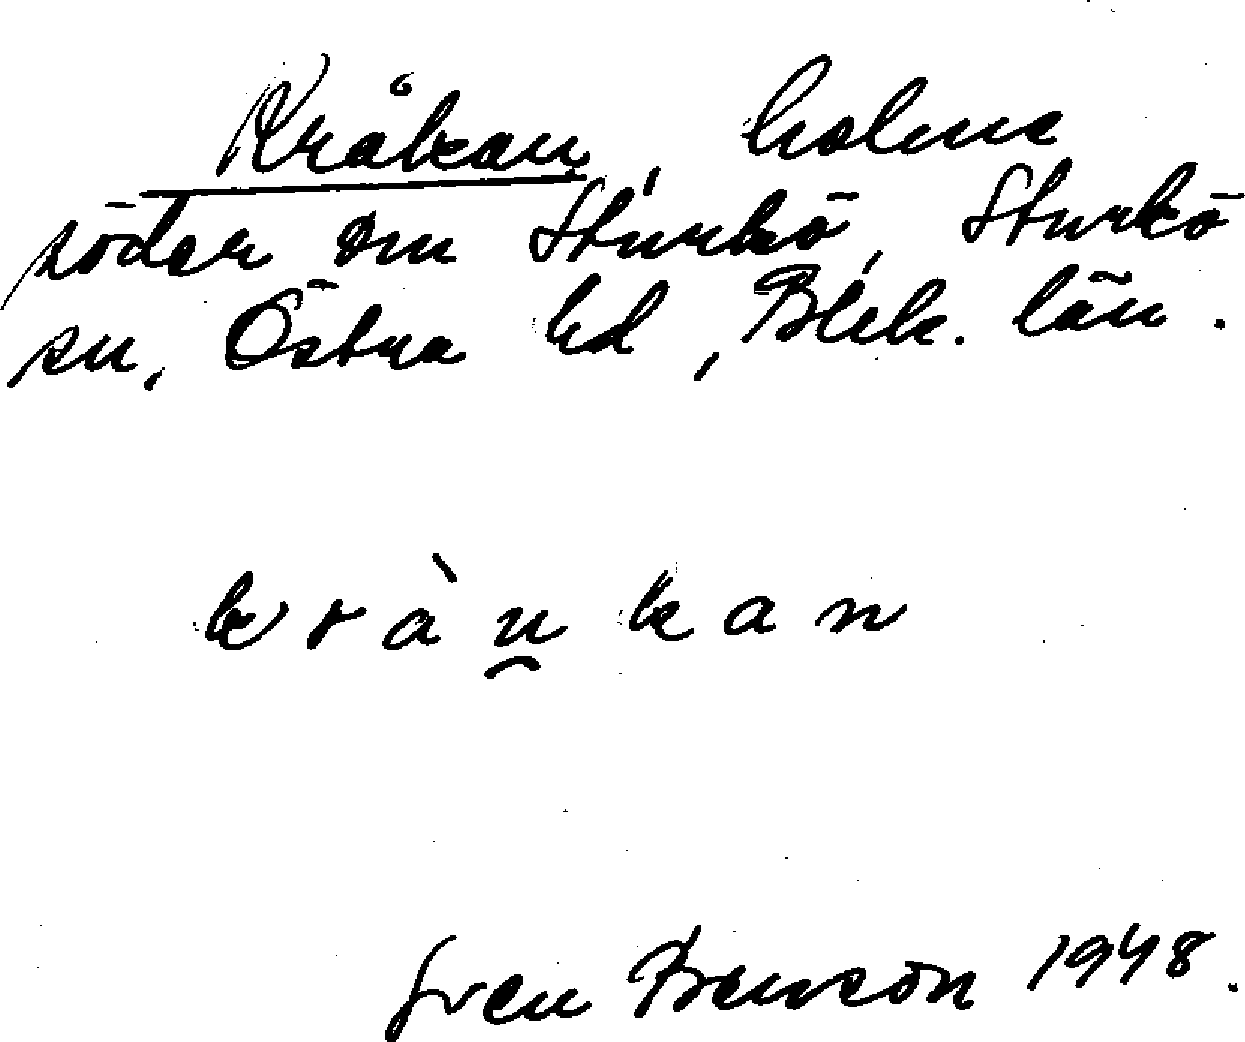 Kråkan, holme
söder om Sturkö, Sturkö
sn, Östra hd, Blek. län.
kràu̯kan
Sven Benson 1948.